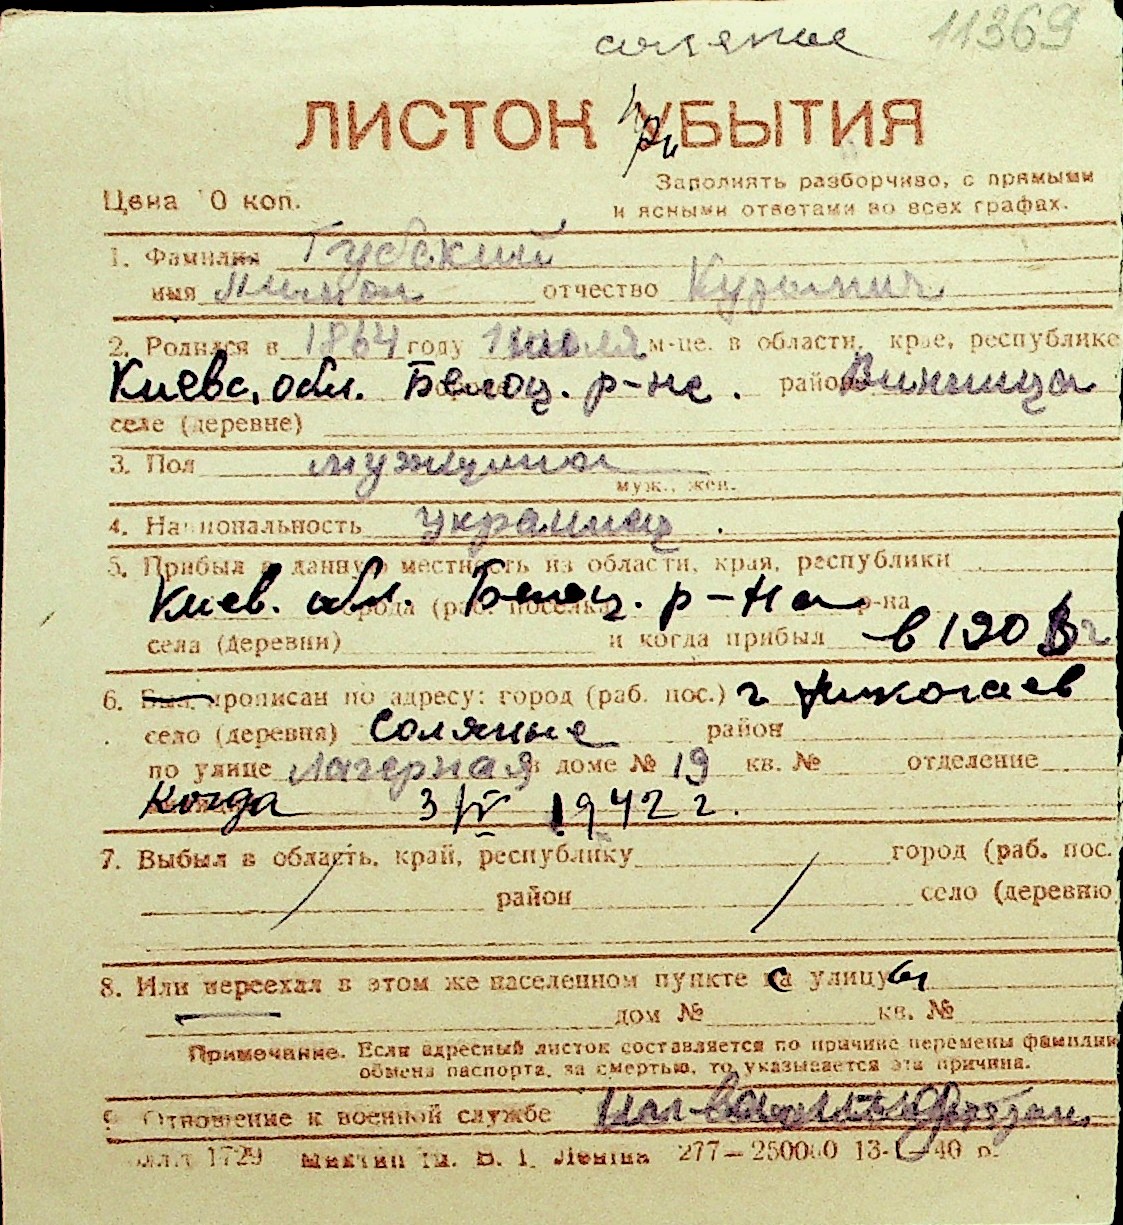 соленое 11369
ЛИСТОК УБЫТИЯ
При
Заполнять разборчиво, с прямыми
Цена 10 коп.
и ясными ответами во всех графах.
1. Фамилия Губский
имя отчество Кузьмич
2. Родился в 1864 году 1 июля м-це. в области, крае, республике
Киевс. обл. Белоц. р-не. района Винница
селе (деревне)
3. Пол мужчина
муж., жен.
4. Национальность украинец.
5. Прибыл в данную местность из области, края, республики
Киев. обл. города (раб. поселка) Белоц. р-на р-на
села (деревни) и когда прибыл в 1903 г
6. Был прописан по адресу: город (раб. пос.) г. Николаев
село (деревня) Соляные район
по улице Лагерная в доме № 19 кв. № отделение
Когда 3/IV 1942 г.
7. Выбыл в область, край, республику город (раб. пос.
район село (деревню
8. Или переехал в этом же населенном пункте са улицуы
дом № кв. №
Примечание. Если адресный листок составляется по причине перемены фамилии
обмена паспорта, за смертью, то указывается эта причина.
9. Отношение к военной службе
1729 ім. В. І. Леніна 277—250000 13-I—40 р.